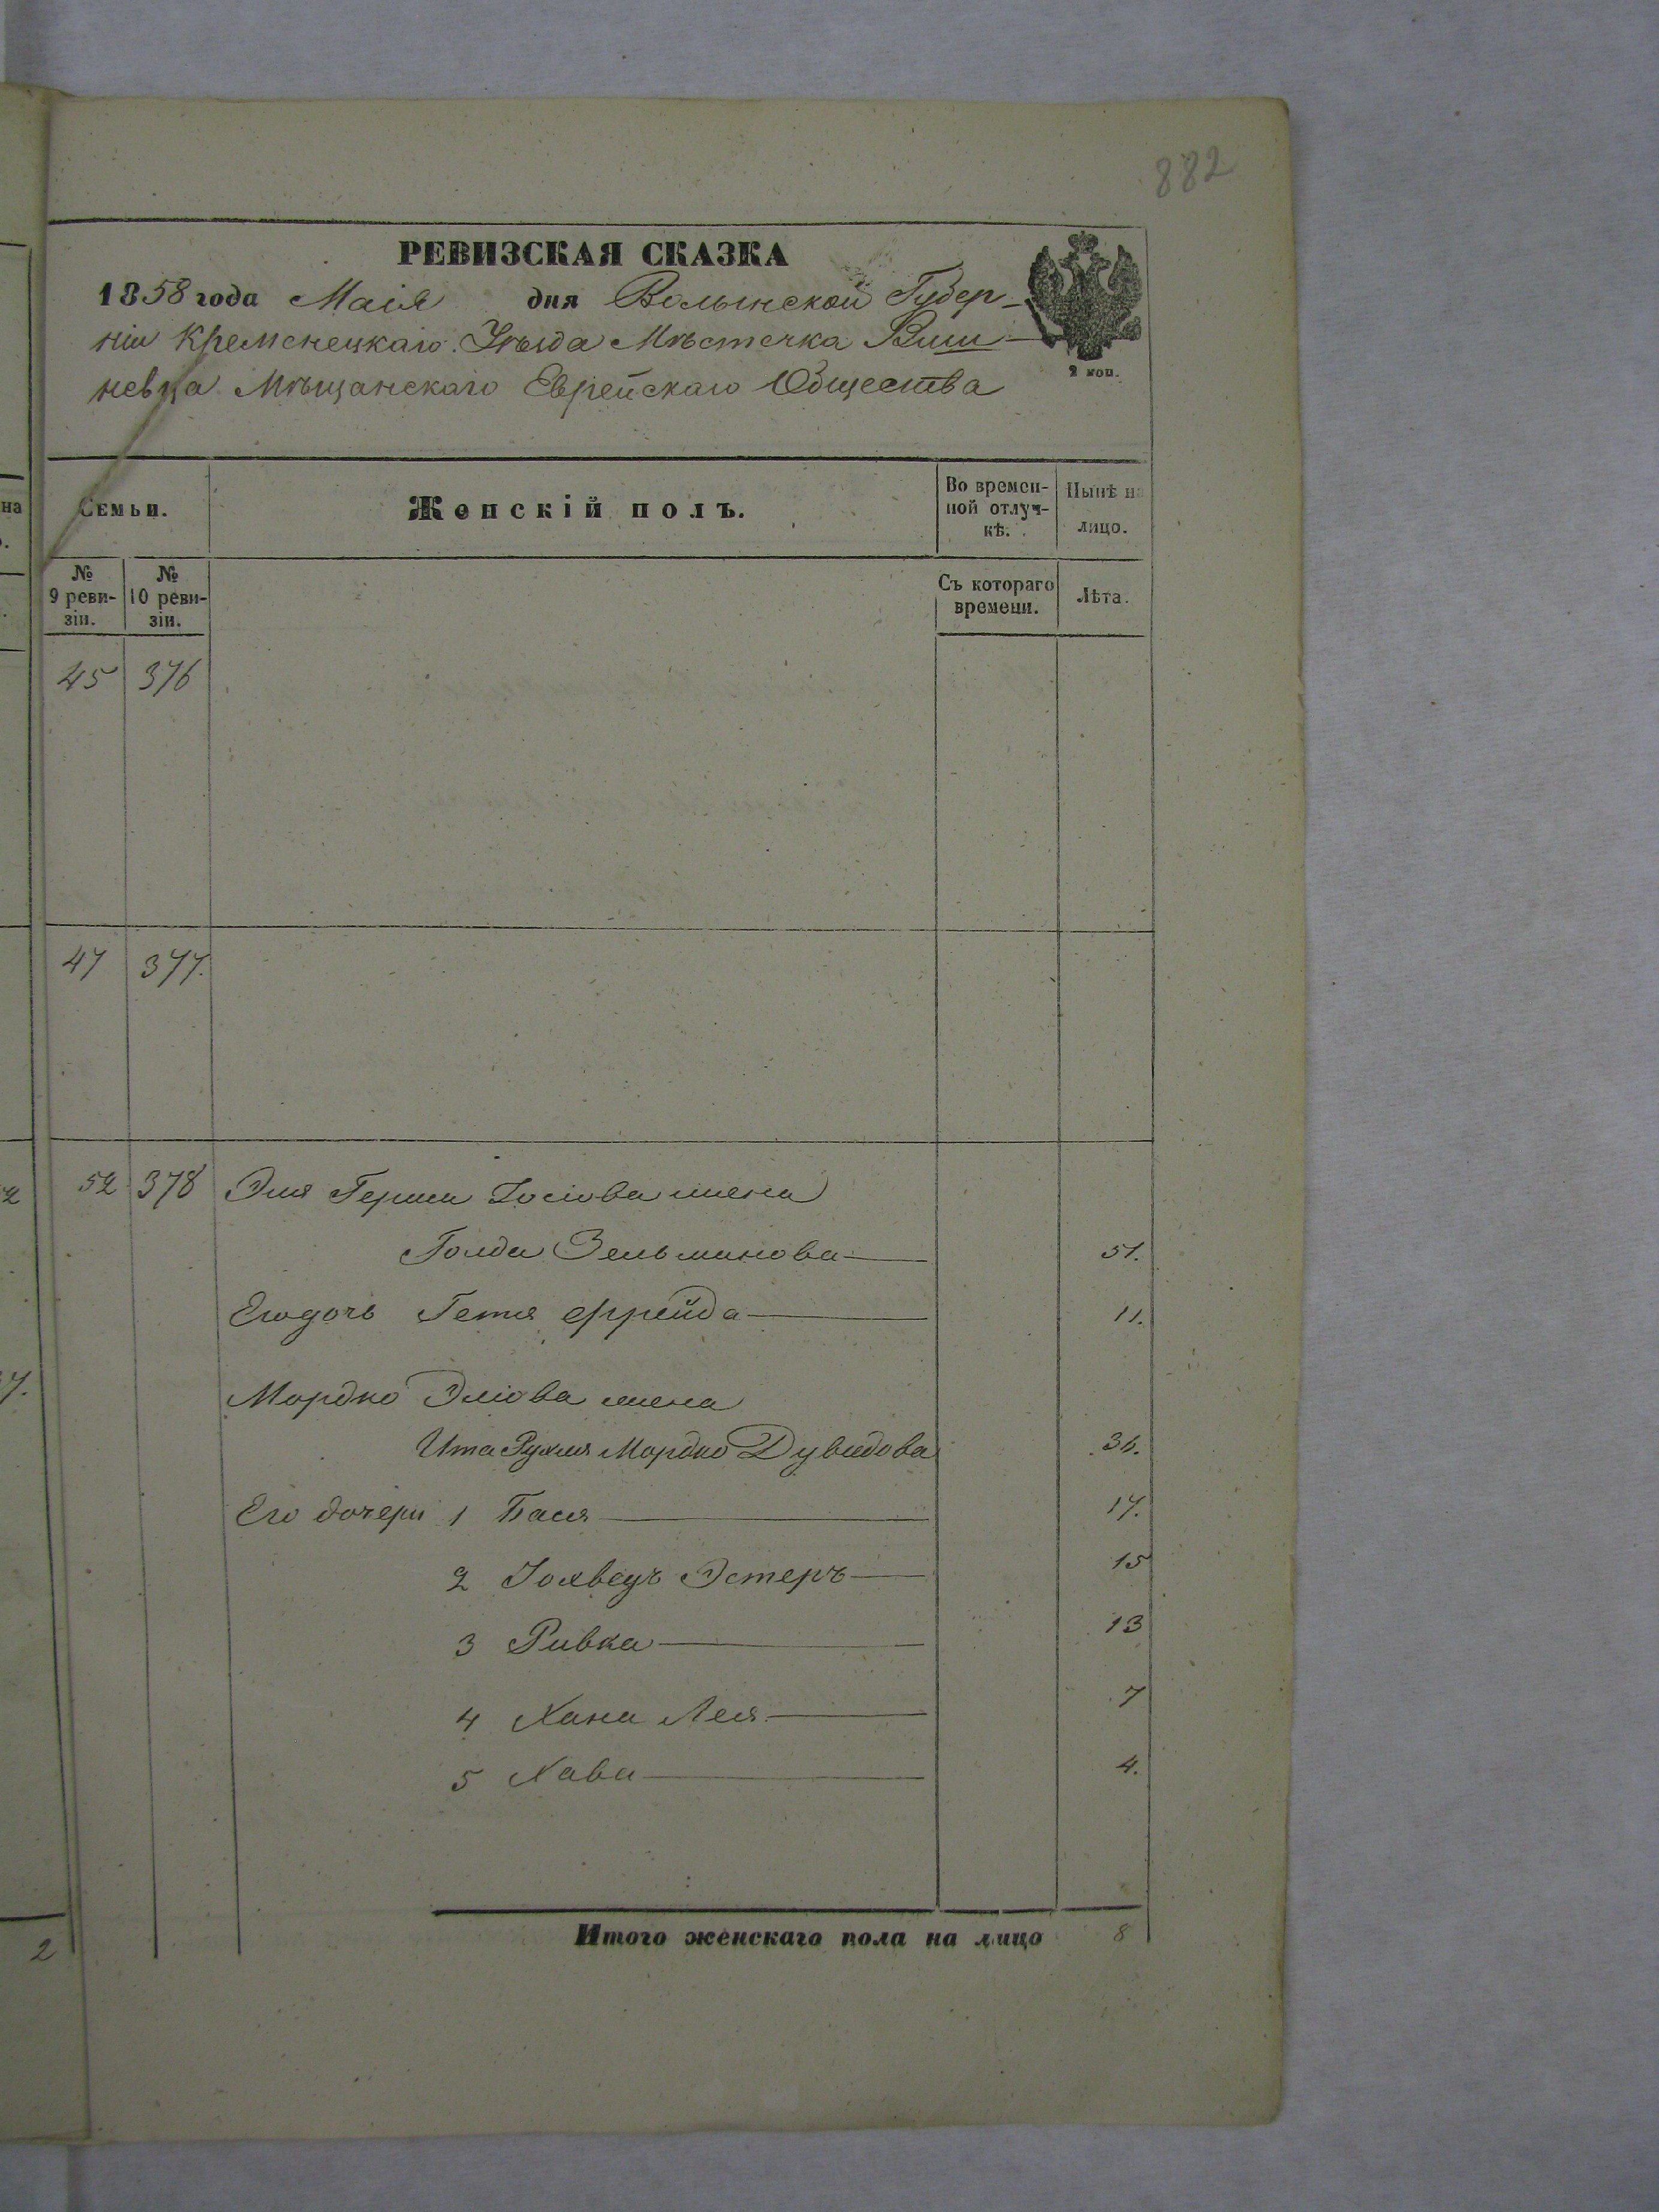 882
РЕВИЗСКАЯ СКАЗКА
1858 года Маія дня Волынской Губер-
ніи Кременецкаго Уѣзда Мѣстечка Виш
невца Мѣщанскаго Еврейскаго Общества
2 коп.
на
Семьи.
Женскій полъ.
Во времен-
ной отлуч-
кѣ.
Нынѣ на
лицо.
№
9 реви-
зіи.
№
10 реви-
зіи.
Съ котораго
времени.
Лѣта.
45 376
47 377.
52 378 Эля Герша Іосіова жена
Голда Зельманова 51.
Его дочь Гетя Фрейда 11.
Мордко Эліова жена
Ита Рухля Мордко Дувидова 36.
Его дочери 1 Бася 17.
2 Іохведъ Эстеръ 15
3 Ривка 13
4 Хана Лея 7
5 Хава 4.
Итого женскаго пола на лицо 8
2